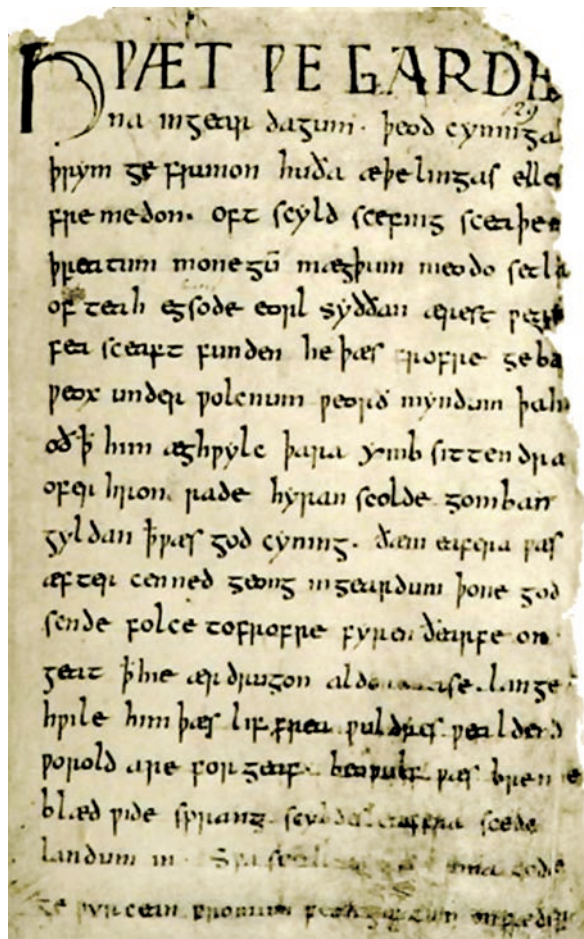 HǷÆT ǷE GARDE
129
na ingear dagum. þeod cyninga
þrym ge frunon huða æþelingas elle
fre medon. oft scyld scefing sceaþe
þreatum monegū mægþum meodo setla
of teah egsode eorl syððan ærest ƿear
fea sceaft funden he þæs frofre geba
ƿeox under ƿolcnum ƿeorð myndum þah
oðꝥ him æghƿylc þara ymb sittendra
ofer hron rade hyran scolde gomban
gyldan ꝥƿæs god cyning. ðæm eafera ƿæs
æfter cenned geong ingeardum þone god
sende folce tofrofre fyren ðearfe on
geat ꝥhie ær drugon aldo ase. lange
hƿile him þæs lif frea ƿuldres ƿealdend
ƿorold are for geaf. beoƿulf ƿæs breme
blæd ƿide sprang scyldes eafera scede
landum in. Sƿa guma gode
ge ƿyrcean fromum feoh giftum on fæder